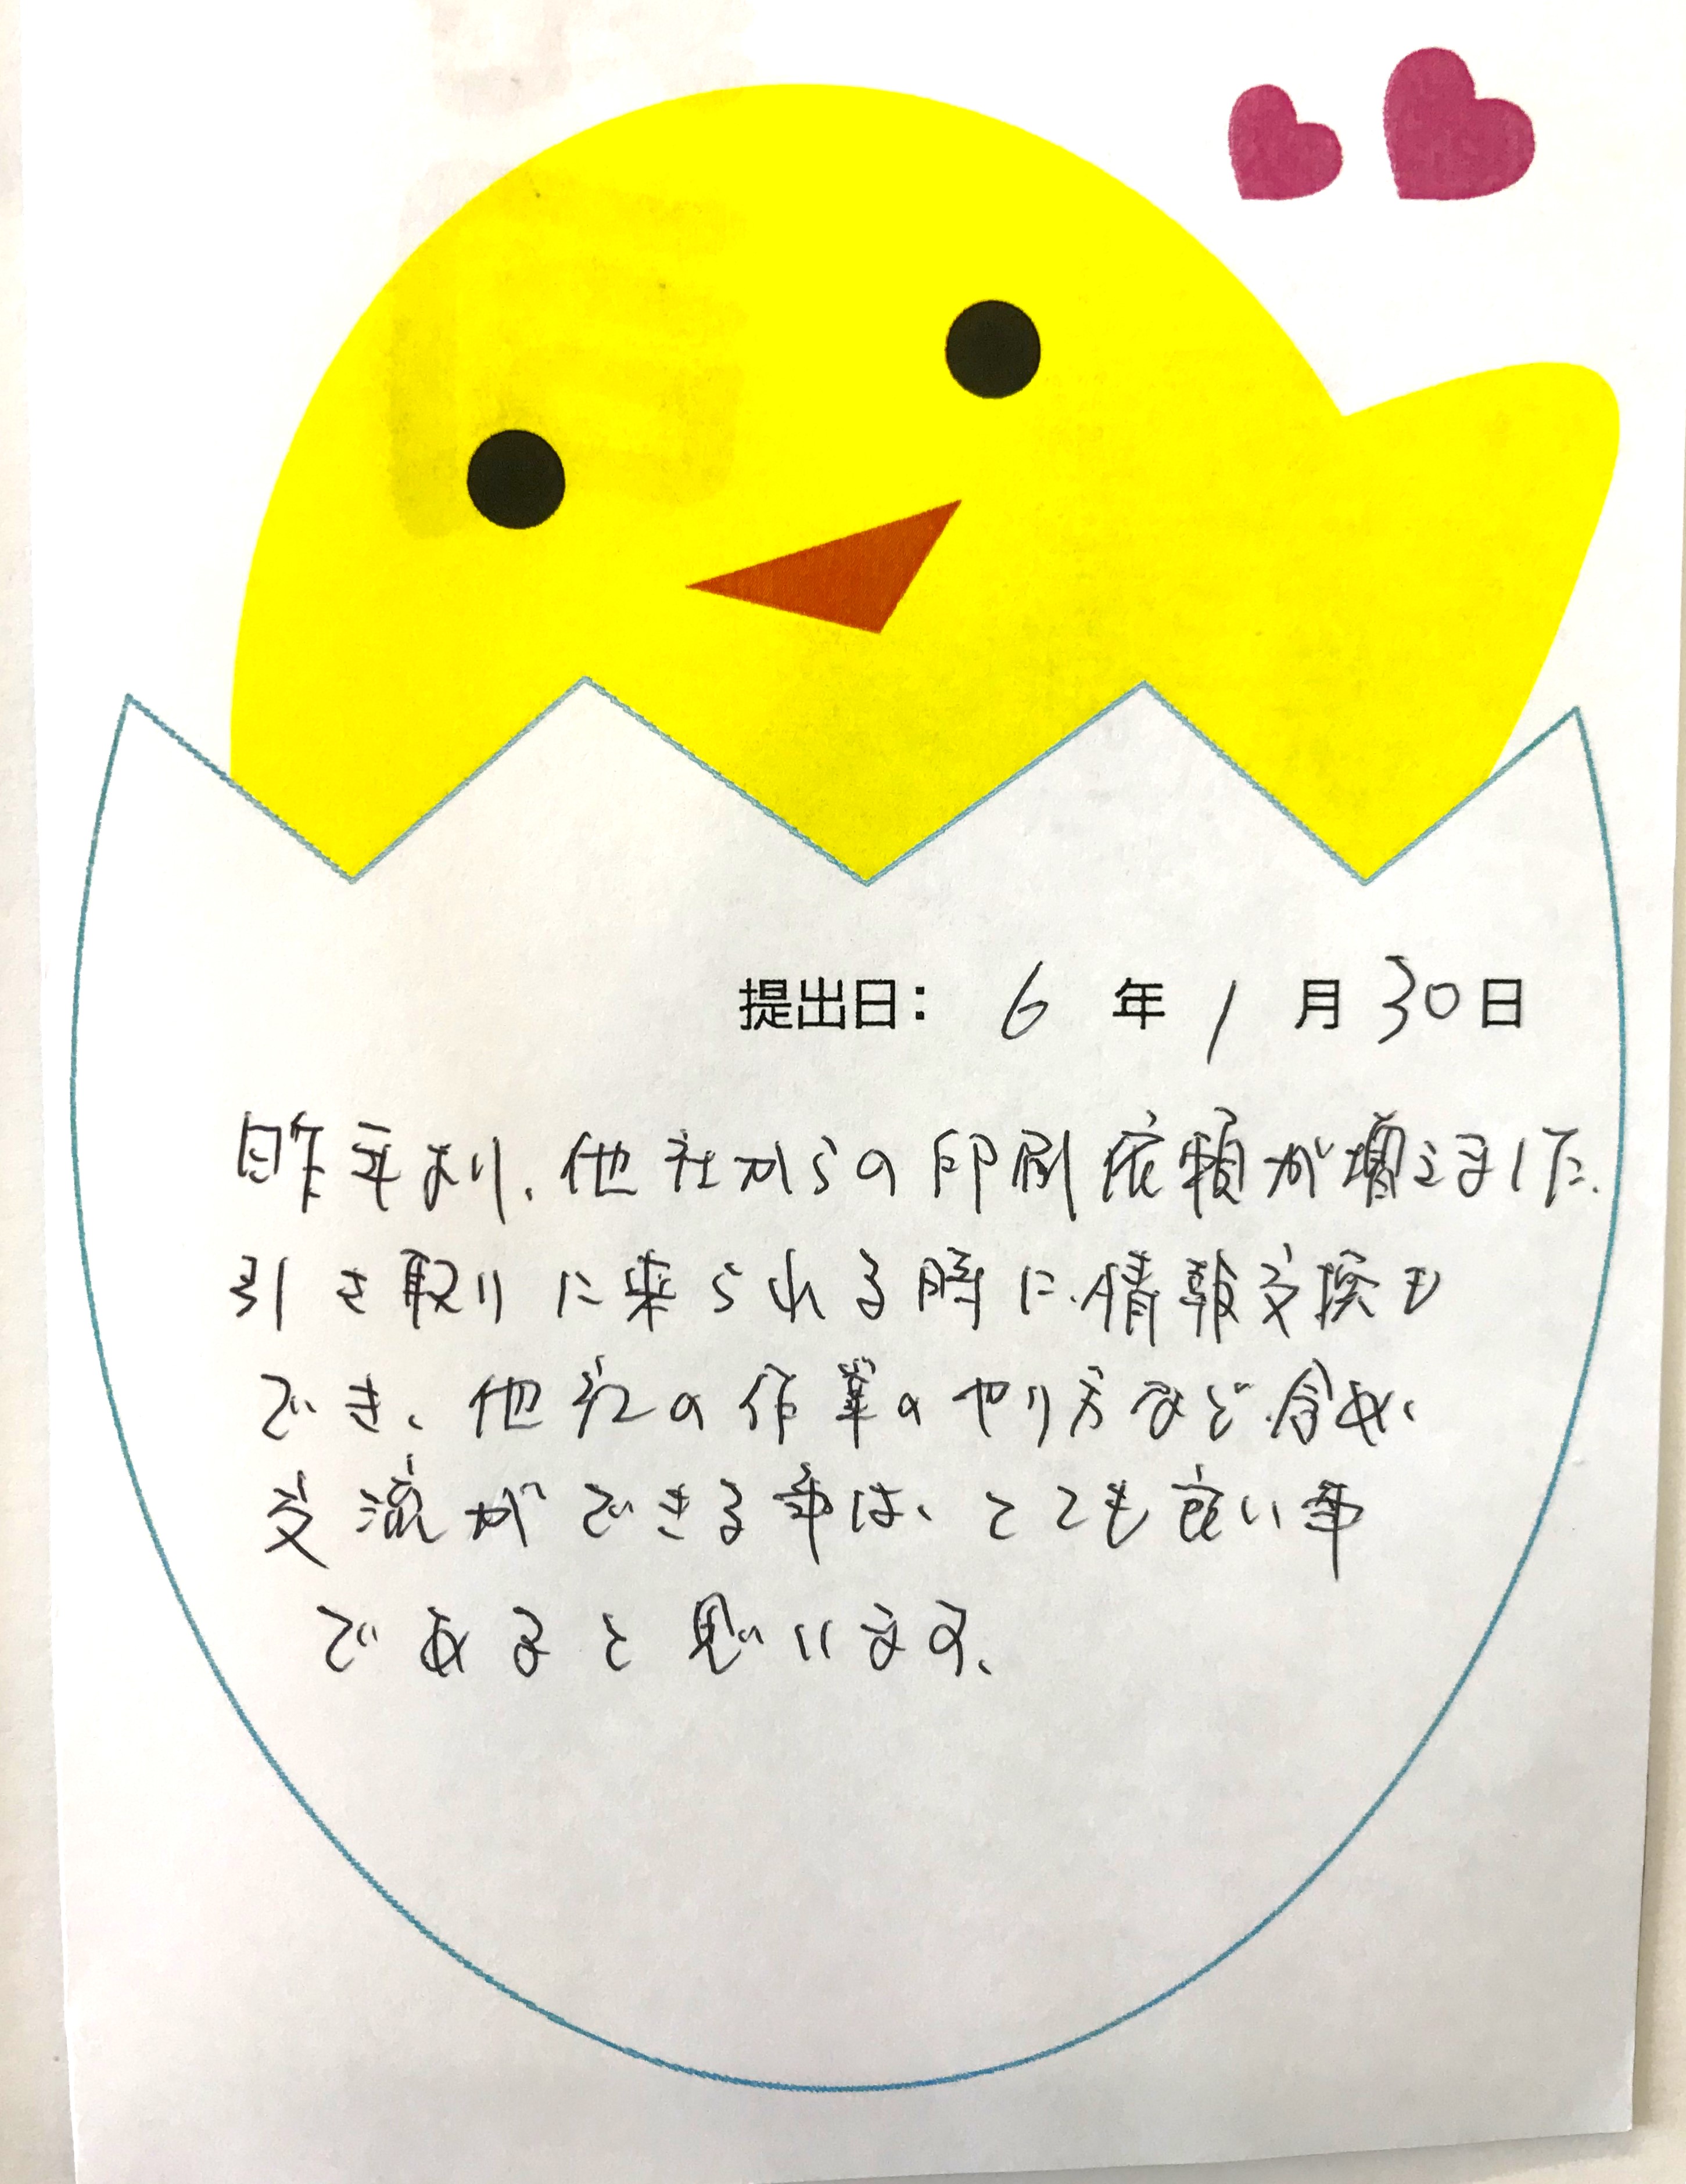 提出日： 6 年 1 月 30 日
昨年より、他社からの印刷依頼が増えました。
引き取りに来られる時に、情報交換も
でき、他社の作業のやり方など含め、
交流ができる事は、とても良い事
であると思います。